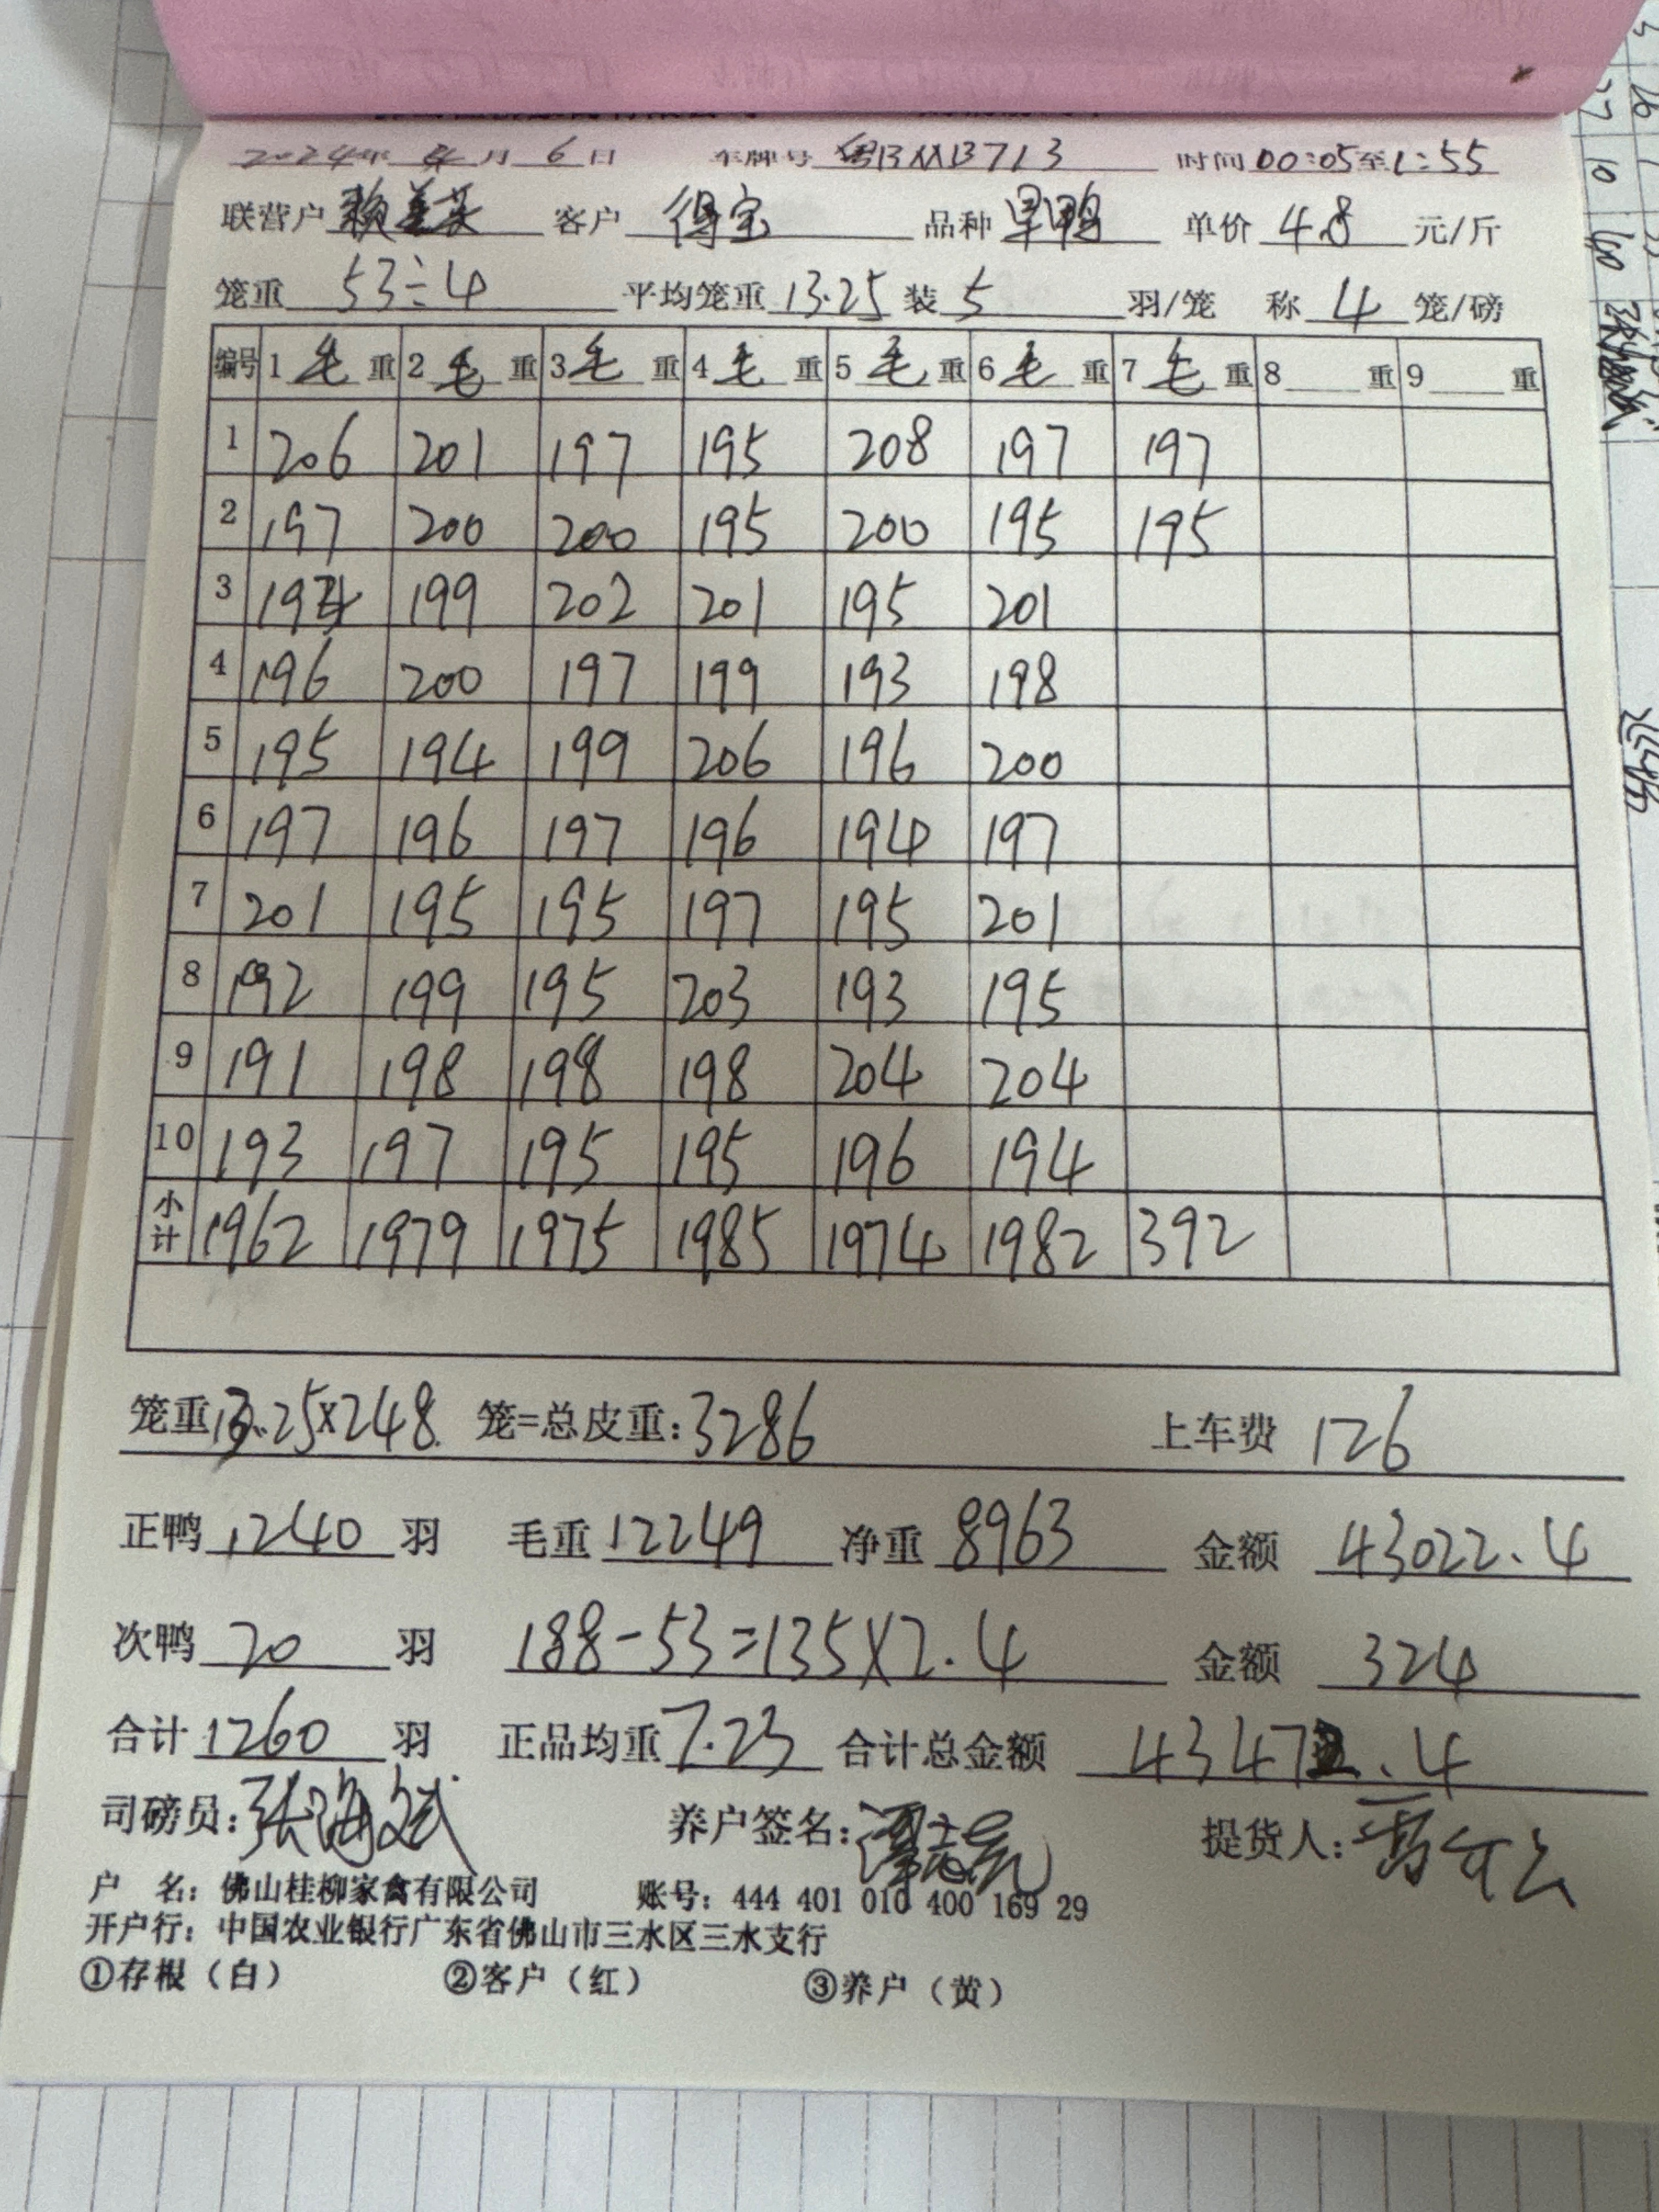 2024年 4 月 6 日 车牌号 时间 00:05至1:55
联营户 赖 客户 得宝 品种 旱鸭 单价 4.8 元/斤
笼重 53÷4 平均笼重 13.25 装 5 羽/笼 称 4 笼/磅
编号 1 毛 重 2 毛 重 3 毛 重 4 毛 重 5 毛 重 6 毛 重 7 毛 重 8 重 9 重
1 206 201 197 195 208 197 197
2 197 200 200 195 200 195 195
3 194 199 202 201 195 201
4 196 200 197 199 193 198
5 195 194 199 206 196 200
6 197 196 197 196 194 197
7 201 195 195 197 195 201
8 192 199 195 203 193 195
9 191 198 198 198 204 204
10 193 197 195 195 196 194
小计 1962 1979 1975 1985 1974 1982 392
笼重 13.25×248 笼=总皮重: 3286 上车费 126
正鸭 1240 羽 毛重 12249 净重 8963 金额 43022.4
次鸭 20 羽 188-53=135×2.4 金额 324
合计 1260 羽 正品均重 7.23 合计总金额 43472.4
司磅员: 张海斌 养户签名: 提货人:
户 名: 佛山桂柳家禽有限公司 账号: 444 401 010 400 169 29
开户行: 中国农业银行广东省佛山市三水区三水支行
①存根（白） ②客户（红） ③养户（黄）